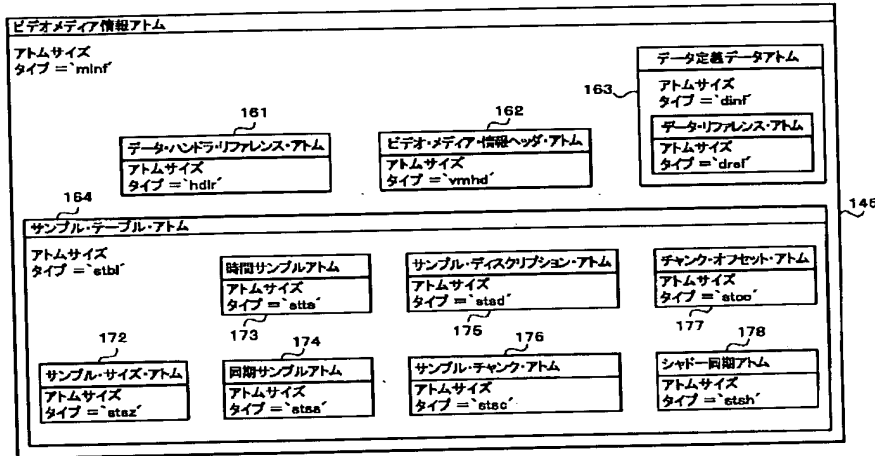 ビデオメディア情報アトム
アトムサイズ
タイプ =`minf'
データ定義データアトム
163
アトムサイズ
タイプ =`dinf'
161
162
データ・ハンドラ・リファレンス・アトム
アトムサイズ
タイプ =`hdlr'
ビデオ・メディア・情報ヘッダ・アトム
アトムサイズ
タイプ =`vmhd'
データ・リファレンス・アトム
アトムサイズ
タイプ =`dref'
164
146
サンプル・テーブル・アトム
アトムサイズ
タイプ =`stbl'
時間サンプルアトム
アトムサイズ
タイプ =`stts'
173
サンプル・ディスクリプション・アトム
アトムサイズ
タイプ =`stsd'
175
チャンク・オフセット・アトム
アトムサイズ
タイプ =`stco'
177
172
サンプル・サイズ・アトム
アトムサイズ
タイプ =`stsz'
174
同期サンプルアトム
アトムサイズ
タイプ =`stss'
176
サンプル・チャンク・アトム
アトムサイズ
タイプ =`stsc'
178
シャドー同期アトム
アトムサイズ
タイプ =`stsh'